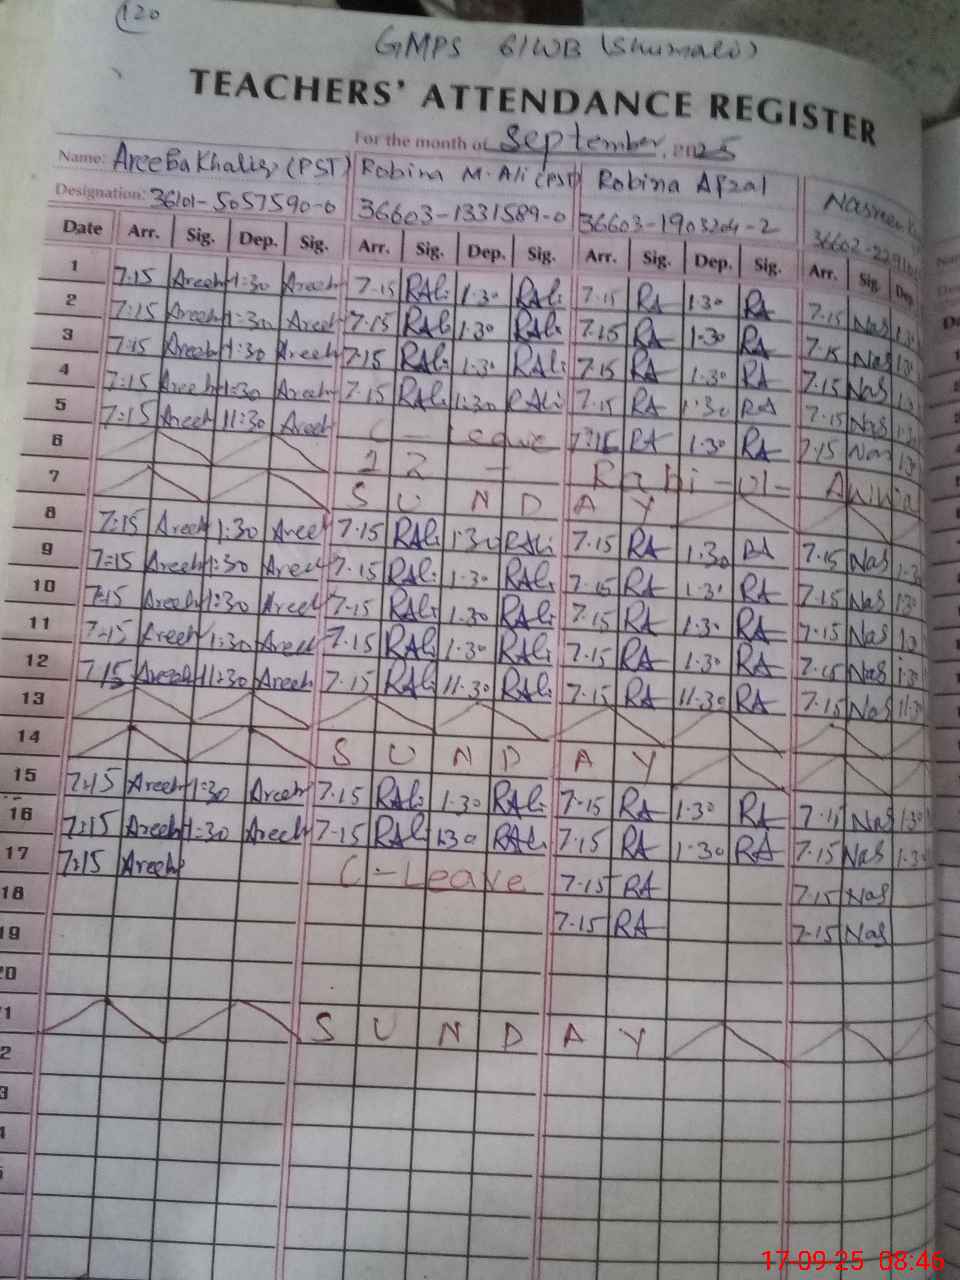 120
GMPS 61WB (Shumali)
TEACHERS' ATTENDANCE REGISTER
For the month of September, 2025
Name: Areeba Khaliq (PST) Robina M. Ali (PST) Robina Afzal Nasreen
Designation: 36101-5057590-0 36603-1331589-0 36603-1903204-2
Date Arr. Sig. Dep. Sig. Arr. Sig. Dep. Sig. Arr. Sig. Dep. Sig. Arr. Sig. Dep.
1 7:15 Areeb 1:30 Areeb 7-15 RAli 1-30 RAli 7-15 RA 1-30 RA 7-15 Nas
2 7:15 Areeb 1:30 Areeb 7-15 RAli 1-30 RAli 7-15 RA 1-30 RA 7-15 Nas
3 7:15 Areeb 1:30 Areeb 7-15 RAli 1-30 RAli 7-15 RA 1-30 RA 7-15 Nas
4 7:15 Areeb 1:30 Areeb 7-15 RAli 1:30 RAli 7-15 RA 1-30 RA 7-15 Nas
5 7:15 Areeb 11:30 Areeb C - Leave 7-15 RA 1-30 RA 7-15 Nas
6 12 - Rabi-ul-Awwal
7 S U N D A Y
8 7:15 Areeb 1:30 Areeb 7-15 RAli 1-30 RAli 7-15 RA 1-30 RA 7-15 Nas 1-30
9 7:15 Areeb 1:30 Areeb 7-15 RAli 1-30 RAli 7-15 RA 1-30 RA 7-15 Nas 1-30
10 7:15 Areeb 1:30 Areeb 7-15 RAli 1-30 RAli 7-15 RA 1-30 RA 7-15 Nas
11 7:15 Areeb 1:30 Areeb 7-15 RAli 1-30 RAli 7-15 RA 1-30 RA 7-15 Nas 1-30
12 7:15 Areeb 11:30 Areeb 7-15 RAli 11-30 RAli 7-15 RA 11-30 RA 7-15 Nas 11-30
13
14 S U N D A Y
15 7:15 Areeb 1:30 Areeb 7-15 RAli 1-30 RAli 7-15 RA 1-30 RA 7-15 Nas 1-30
16 7:15 Areeb 1:30 Areeb 7-15 RAli 1-30 RAli 7-15 RA 1-30 RA 7-15 Nas 1-30
17 7:15 Areeb C-Leave 7-15 RA 7-15 Nas
18 7-15 RA 7-15 Nas
19
20
S U N D A Y
17-09-25 08:46